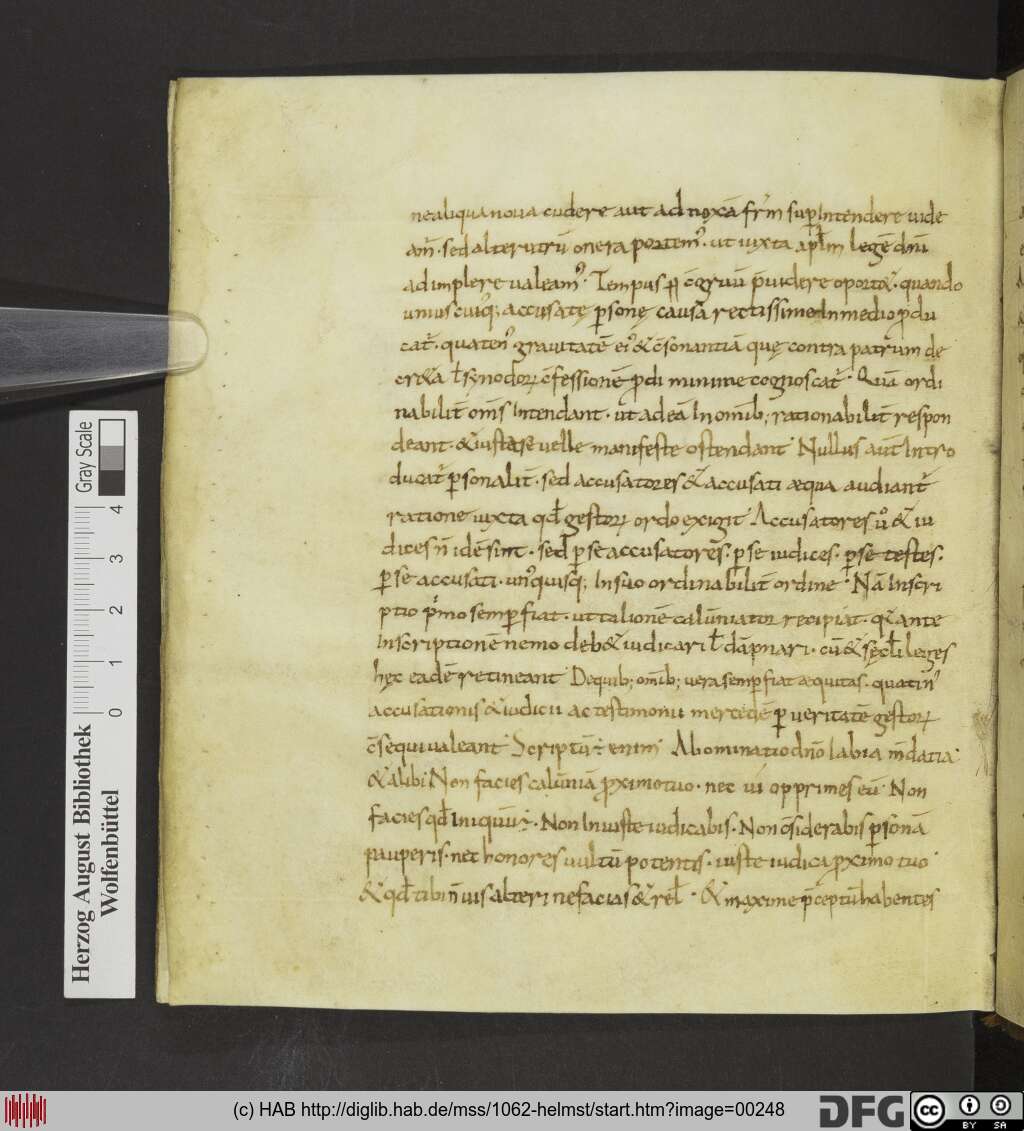 ne aliqua noua cudere aut ad noxā fr̄m sup Intendere uide
am̄. sed alterutrū onera portem᾿. ut iuxta ap̄lm legē dn̄i
adimplere ualeam᾿. Tempus ꝓ c̄gruū p̄uidere oport&. quando
uniuscuiq; accusatę ꝑsonę causā rectissime In medio ꝓdu
cat᾿. quaten᾿ grauitatē ei᾿ & c̄sonantiā quę contra patrum de
cr&a ł synodoꝝ c̄fessionē ꝓdi minime cognoscat᾿. Quā ordi
nabilit̄ om̄s Intendant. ut ad eā In omīb; rationabilit̄ respon
deant. & iuste se uelle manifeste ostendant. Nullus aut̄ Intro
ducat᾿ ꝑsonalit̄. sed accusatores & accusati æqua audiant᾿
ratione iuxta qd̄ gestoꝝ ordo exigit. Accusatores u᾿ & iu
dices n̄ idē sint. sed ꝑ se accusatores. ꝑ se iudices. ꝑ se testes.
ꝑ se accusati. un᾿quisq; In suo ordinabilit̄ ordine. Nā Inscri
ptio p̄mo semꝑ fiat. ut talionē calūniator recipiat. q̄ ante
Inscriptionē nemo deb& iudicari ł dāpnari. cū & sęcłi leges
hęc eadē retineant. De quib; omīb; uera semꝑ fiat æquitas. quatin᾿
accusationis & iudicii ac testimonii mercedē ꝑ ueritatē gestoꝝ
c̄sequi ualeant. Scriptū ÷ enim. Abominatio dn̄o labia m̄datia.
& alibi. Non facies calūniā ꝓximo tuo. nec ui opprimes eū. Non
facies qd̄ Iniquū ÷. Non Iniuste iudicabis. Non c̄siderabis ꝑsonā
pauperis. nec honores uultū potentis. iuste iudica ꝓximo tuo.
& qd̄ tibi n̄ uis alteri ne facias & reł. & maxime p̄ceptū habentes
Herzog August Bibliothek
Wolfenbüttel
Gray Scale
0 1 2 3 4
(c) HAB http://diglib.hab.de/mss/1062-helmst/start.htm?image=00248
DFG
cc BY SA